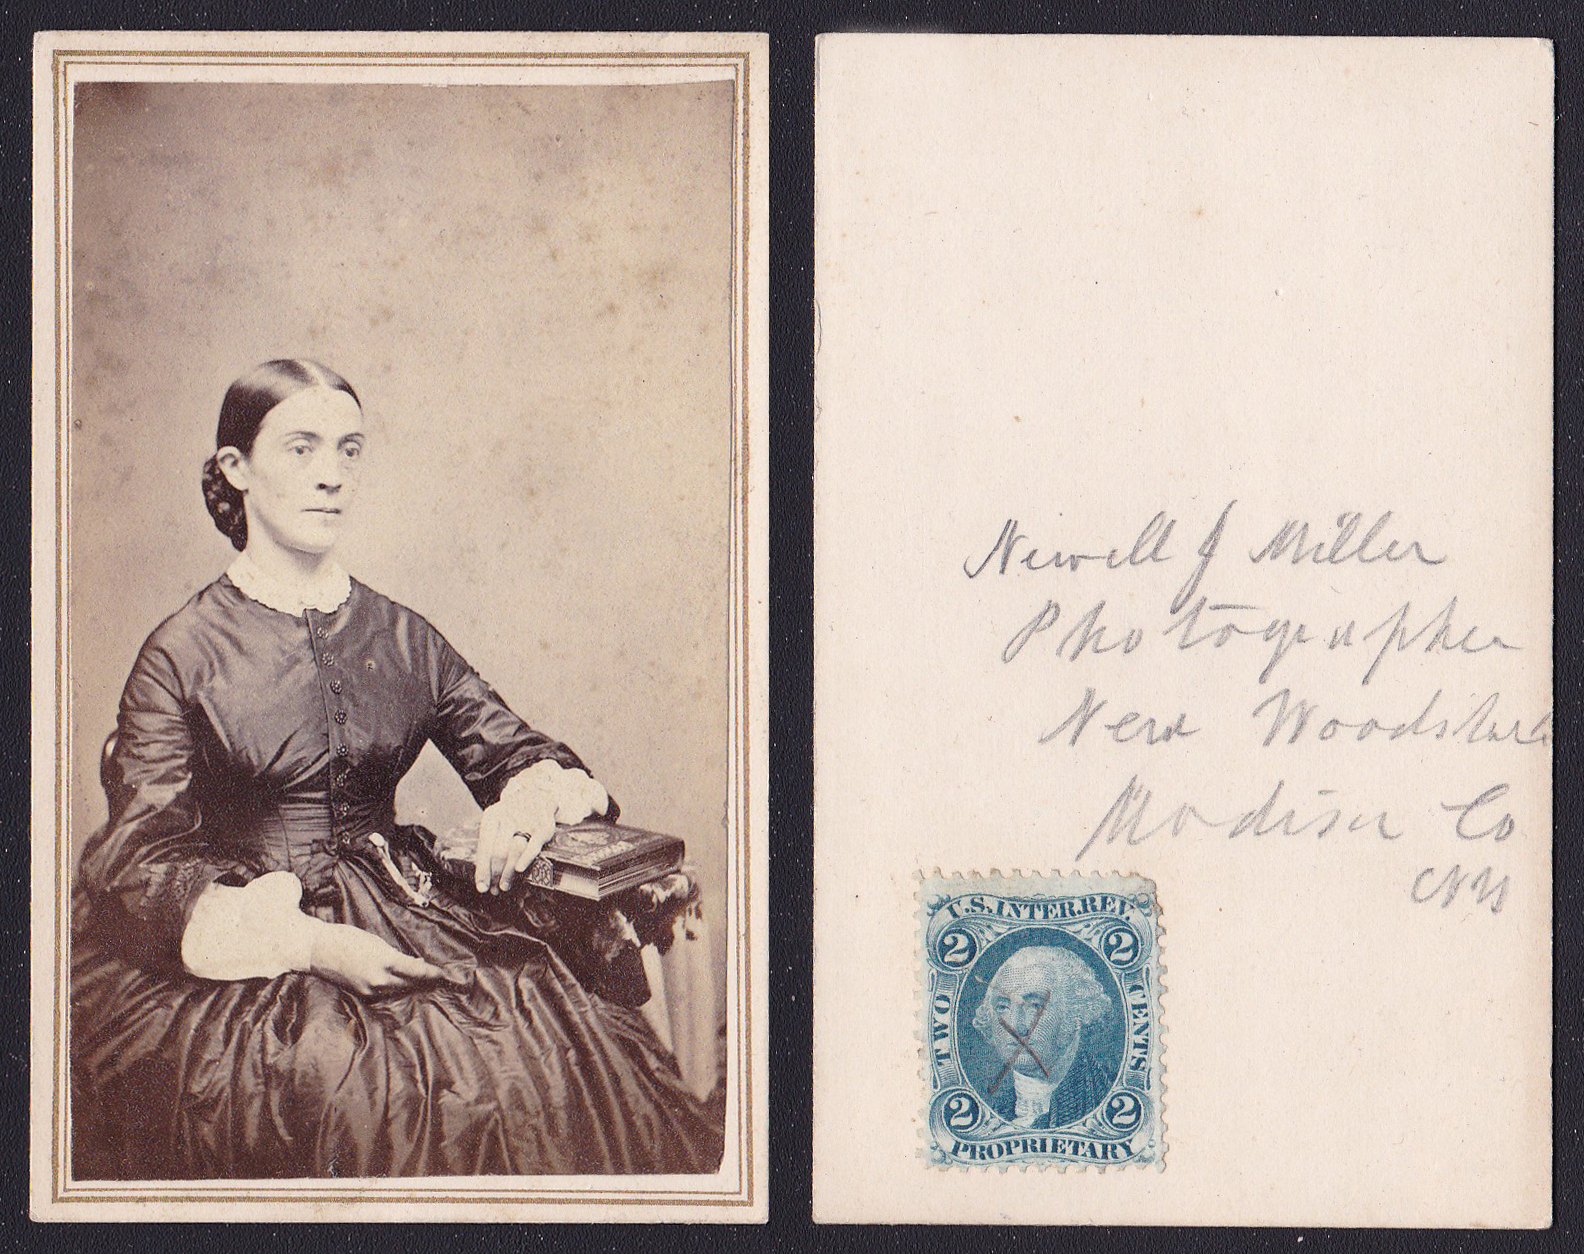 Newell J Miller
Photographer
New Woodstock
Madison Co
NY
U.S. INTER. REV.
2 2
TWO CENTS
2 2
PROPRIETARY
X